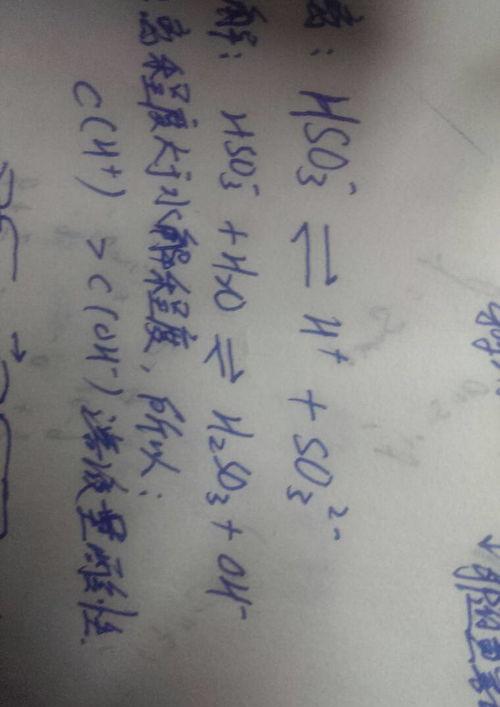 离: HSO₃⁻ ⇌ H⁺ + SO₃²⁻
解: HSO₃⁻ + H₂O ⇌ H₂SO₃ + OH⁻
离程度大于水解程度, 所以:
C(H⁺) > C(OH⁻) 溶液呈酸性.